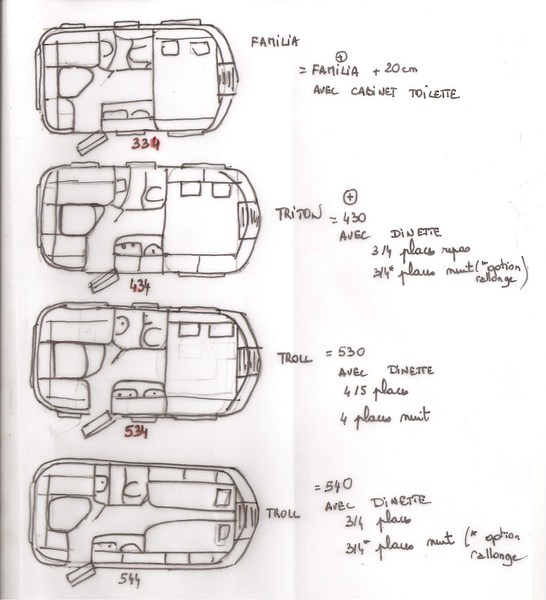 FAMILIA
= FAMILIA + 20cm
AVEC CABINET TOILETTE
334
TRITON = 430
AVEC DINETTE
3/4 places repas
3/4* places nuit (* option
rallonge)
434
TROLL = 530
AVEC DINETTE
4/5 places
4 places nuit
534
TROLL = 540
AVEC DINETTE
3/4 places
3/4* places nuit (* option
rallonge
544